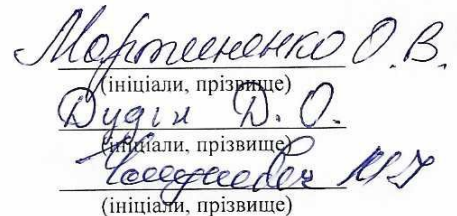 Мартиненко О. В.
(ініціали, прізвище)
Дудін Д. О.
(ініціали, прізвище)
(ініціали, прізвище)